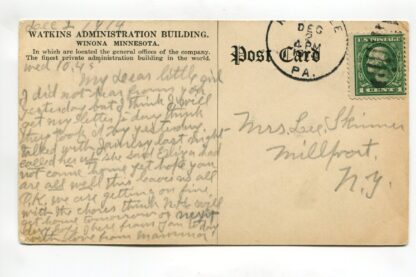 Dec 2 1914
WATKINS ADMINISTRATION BUILDING.
WINONA MINNESOTA.
In which are located the general offices of the company.
The finest private administration building in the world.
Wed 10,45
My dear little girl
I did not hear from you
yesterday but I think I will
get my letter to day think
they took it by yesterday
talked with last night
called her up she said
not come home yet hope you
are all well this leaves us all
O.K. we are getting on fine,
with the chores think will
get home tomorrow or next
day here from you to day
with love from mamma
Post Card
DEC
2
PM
PA.
U.S. POSTAGE
1 CENT 1
Mrs Lee Skinner
Millport,
N.Y.